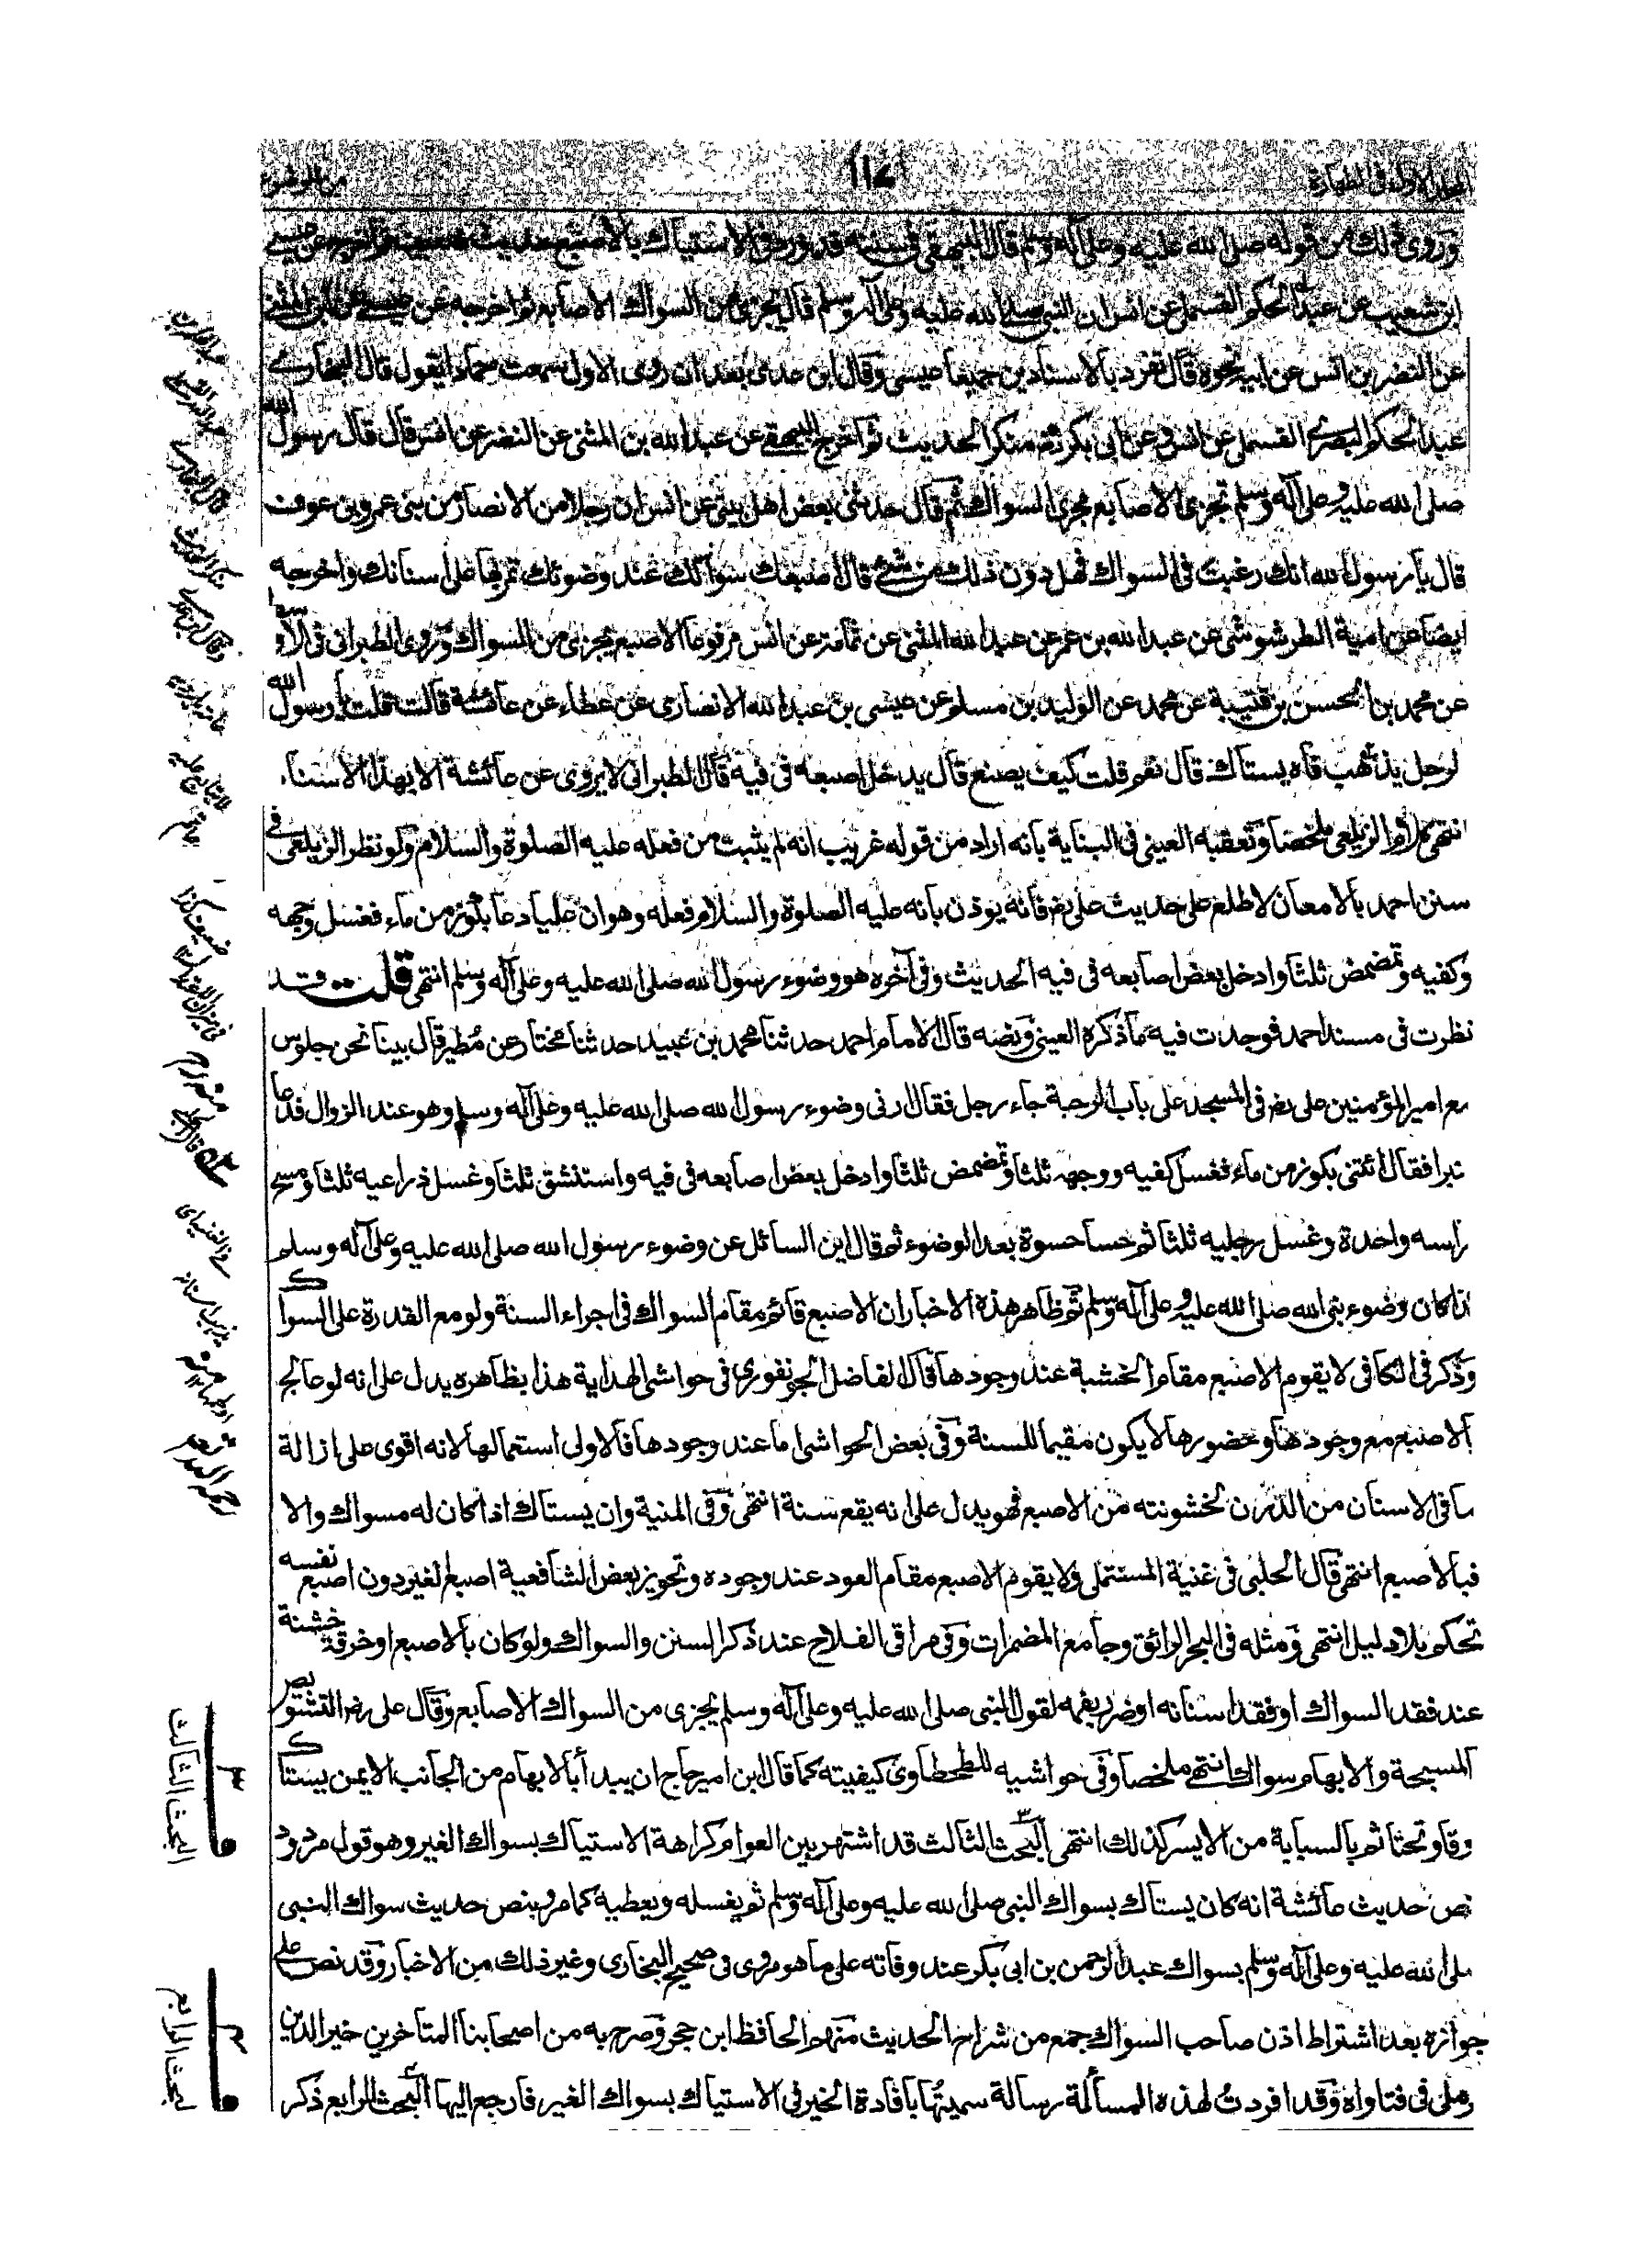 المجلد الاول فى الطهارة
117
من الوضوء
وروى ذلك من قوله صلى الله عليه وعلى آله وسلم قال البيهقي فى سننه قد ورد فى الاستياك بالاصبع حديث ضعيف فاخرجه عن عيسى
ابن شعيب عن عبد الحكم القسملى عن انس ان النبى صلى الله عليه وعلى آله وسلم قال يجزى من السواك الاصابع ثم اخرجه عن عيسى عن ابن المثنى
عن النضر بن انس عن ابيه نحوه قال تفرد بالاسنادين جميعا عيسى وقال ابن عدى بعد ان روى الاول سمعت حمادا يقول قال البخارى
عبد الحكم البصرى القسملى عن انس وعن ابى بكرة منكر الحديث ثم اخرج البيهقى عن عبد الله بن المثنى عن النضر عن انس قال قال رسول الله
صلى الله عليه وعلى آله وسلم تجزى الاصابع مجرى السواك ثم قال حدثنى بعض اهل بيتى عن انس ان رجلا من الانصار من بنى عمرو بن عوف
قال يا رسول الله انك رغبت فى السواك فهل دون ذلك من شئ قال اصبعك سواكك عند وضوئك تمرها على اسنانك واخرجه
ايضا عن امية الطرشوشى عن عبد الله بن عمر عن عبد الله المثنى عن ثمامة عن انس مرفوعا الاصبع يجزى من السواك وروى الطبرانى فى الاوسط
عن محمد بن الحسن بن قتيبة عن محمد عن الوليد بن مسلم عن عيسى بن عبد الله الانصارى عن عطاء عن عائشة قالت قلت يا رسول الله
لرجل يذهب فاه يستاك قال نعم قلت كيف يصنع قال يدخل اصبعه فى فيه قال الطبرانى لا يروى عن عائشة الا بهذا الاسناد
انتهى كلام الزيلعى ملخصا وتعقبه العينى فى البناية بانه اراد من قوله غريب انه لم يثبت من فعله عليه الصلوة والسلام ولو نظر الزيلعى فى
سنن احمد بالامعان لاطلع على حديث على رض فانه يوذن بانه عليه الصلوة والسلام فعله وهو ان عليا دعا بكوز من ماء فغسل وجهه
وكفيه وتمضمض ثلثا وادخل بعض اصابعه فى فيه الحديث وفى آخره هو وضوء رسول الله صلى الله عليه وعلى آله وسلم انتهى قلت وقد
نظرت فى مسند احمد فوجدت فيه ما ذكره العينى ونصه قال الامام احمد حدثنا محمد بن عبيد حدثنا مختار عن مطير قال بينا نحن جلوس
مع امير المؤمنين على رض فى المسجد على باب الرحبة جاء رجل فقال ارنى وضوء رسول الله صلى الله عليه وعلى آله وسلم وهو عند الزوال فدعا
نبرا فقال ائتنى بكوز من ماء فغسل كفيه ووجهه ثلثا وتمضمض ثلثا وادخل بعض اصابعه فى فيه واستنشق ثلثا وغسل ذراعيه ثلثا ومسح
رأسه واحدة وغسل رجليه ثلثا ثم حسا حسوة بعد الوضوء ثم قال اين السائل عن وضوء رسول الله صلى الله عليه وعلى آله وسلم
كذا كان وضوء نبى الله صلى الله عليه وعلى آله وسلم ثم ظاهر هذه الاخبار ان الاصبع قائم مقام السواك فى اجراء السنة ولو مع القدرة على السواك
وذكر فى الكافى لا يقوم الاصبع مقام الخشبة عند وجودها قال الفاضل الجونفورى فى حواشى الهداية هذا بظاهره يدل على انه لو عالج
بالاصبع مع وجودها وحضورها لا يكون مقيما للسنة وفى بعض الحواشى اما عند وجودها فالاولى استعمالها لانه اقوى على ازالة
ما فى الاسنان من الدرن لخشونته من الاصبع فهو يدل على انه يقع سنة انتهى وفى المنية وان يستاك اذا كان له مسواك والا
فبالاصبع انتهى قال الحلبى فى غنية المستملى ولا يقوم الاصبع مقام العود عند وجوده وتجويز بعض الشافعية اصبع لغير دون اصبع نفسه
تحكم بلا دليل انتهى ومثله فى البحر الرائق وجامع المضمرات وفى مراقى الفلاح عند ذكر السنن والسواك ولو كان بالاصبع او خرقة خشنة
عند فقد السواك او فقد اسنانه او ضرر بفمه لقول النبى صلى الله عليه وعلى آله وسلم يجزى من السواك الاصابع وقال على رض التشويص
المسبحة والابهام سواك انتهى ملخصا وفى حواشيه للطحطاوى كيفيته كما قال ابن امير حاج ان يبدأ بالابهام من الجانب الايمن يستاك
فوقا وتحتا ثم بالسبابة من الايسر كذلك انتهى البحث الثالث قد اشتهر بين العوام كراهة الاستياك بسواك الغير وهو قول مردود
بنص حديث عائشة انه كان يستاك بسواك النبى صلى الله عليه وعلى آله وسلم ثم يغسله ويعطيه كما مر وبنص حديث سواك النبى
صلى الله عليه وعلى آله وسلم بسواك عبد الرحمن بن ابى بكر عند وفاته على ما هو مروى فى صحيح البخارى وغير ذلك من الاخبار وقد نص على
جوازه بعد اشتراط اذن صاحب السواك جمع من شراح الحديث منهم الحافظ ابن حجر وصرح به من اصحابنا المتاخرين خير الدين
رملى فى فتاواه وقد افردت لهذه المسألة رسالة سميتها بافادة الخير فى الاستياك بسواك الغير فارجع اليها البحث الرابع ذكر
البحث الثالث
البحث الرابع